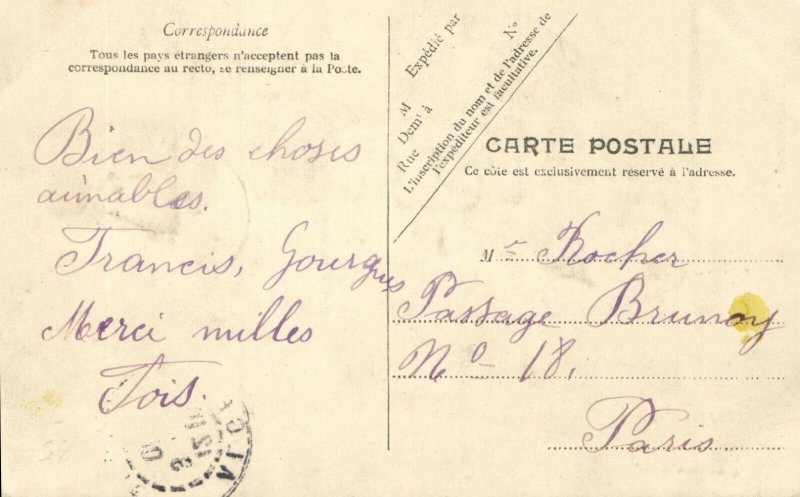 Correspondance
Tous les pays étrangers n'acceptent pas la
correspondance au recto, se renseigner à la Poste.
Bien des choses
aimables.
Francis, Gourgues
Merci milles
fois.
Expédié par
M
N°
Demt à
Rue
L'inscription du nom et de l'adresse de
l'expéditeur est facultative.
CARTE POSTALE
Ce côté est exclusivement réservé à l'adresse.
M r Rocher
Passage Brunoy
No 18.
Paris